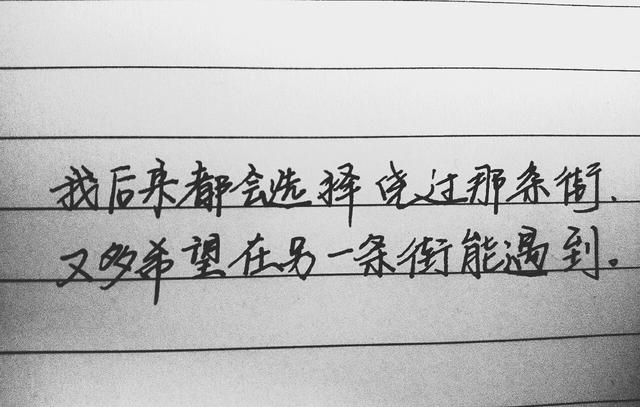 我后来都会选择绕过那条街.
又多希望在另一条街能遇到.